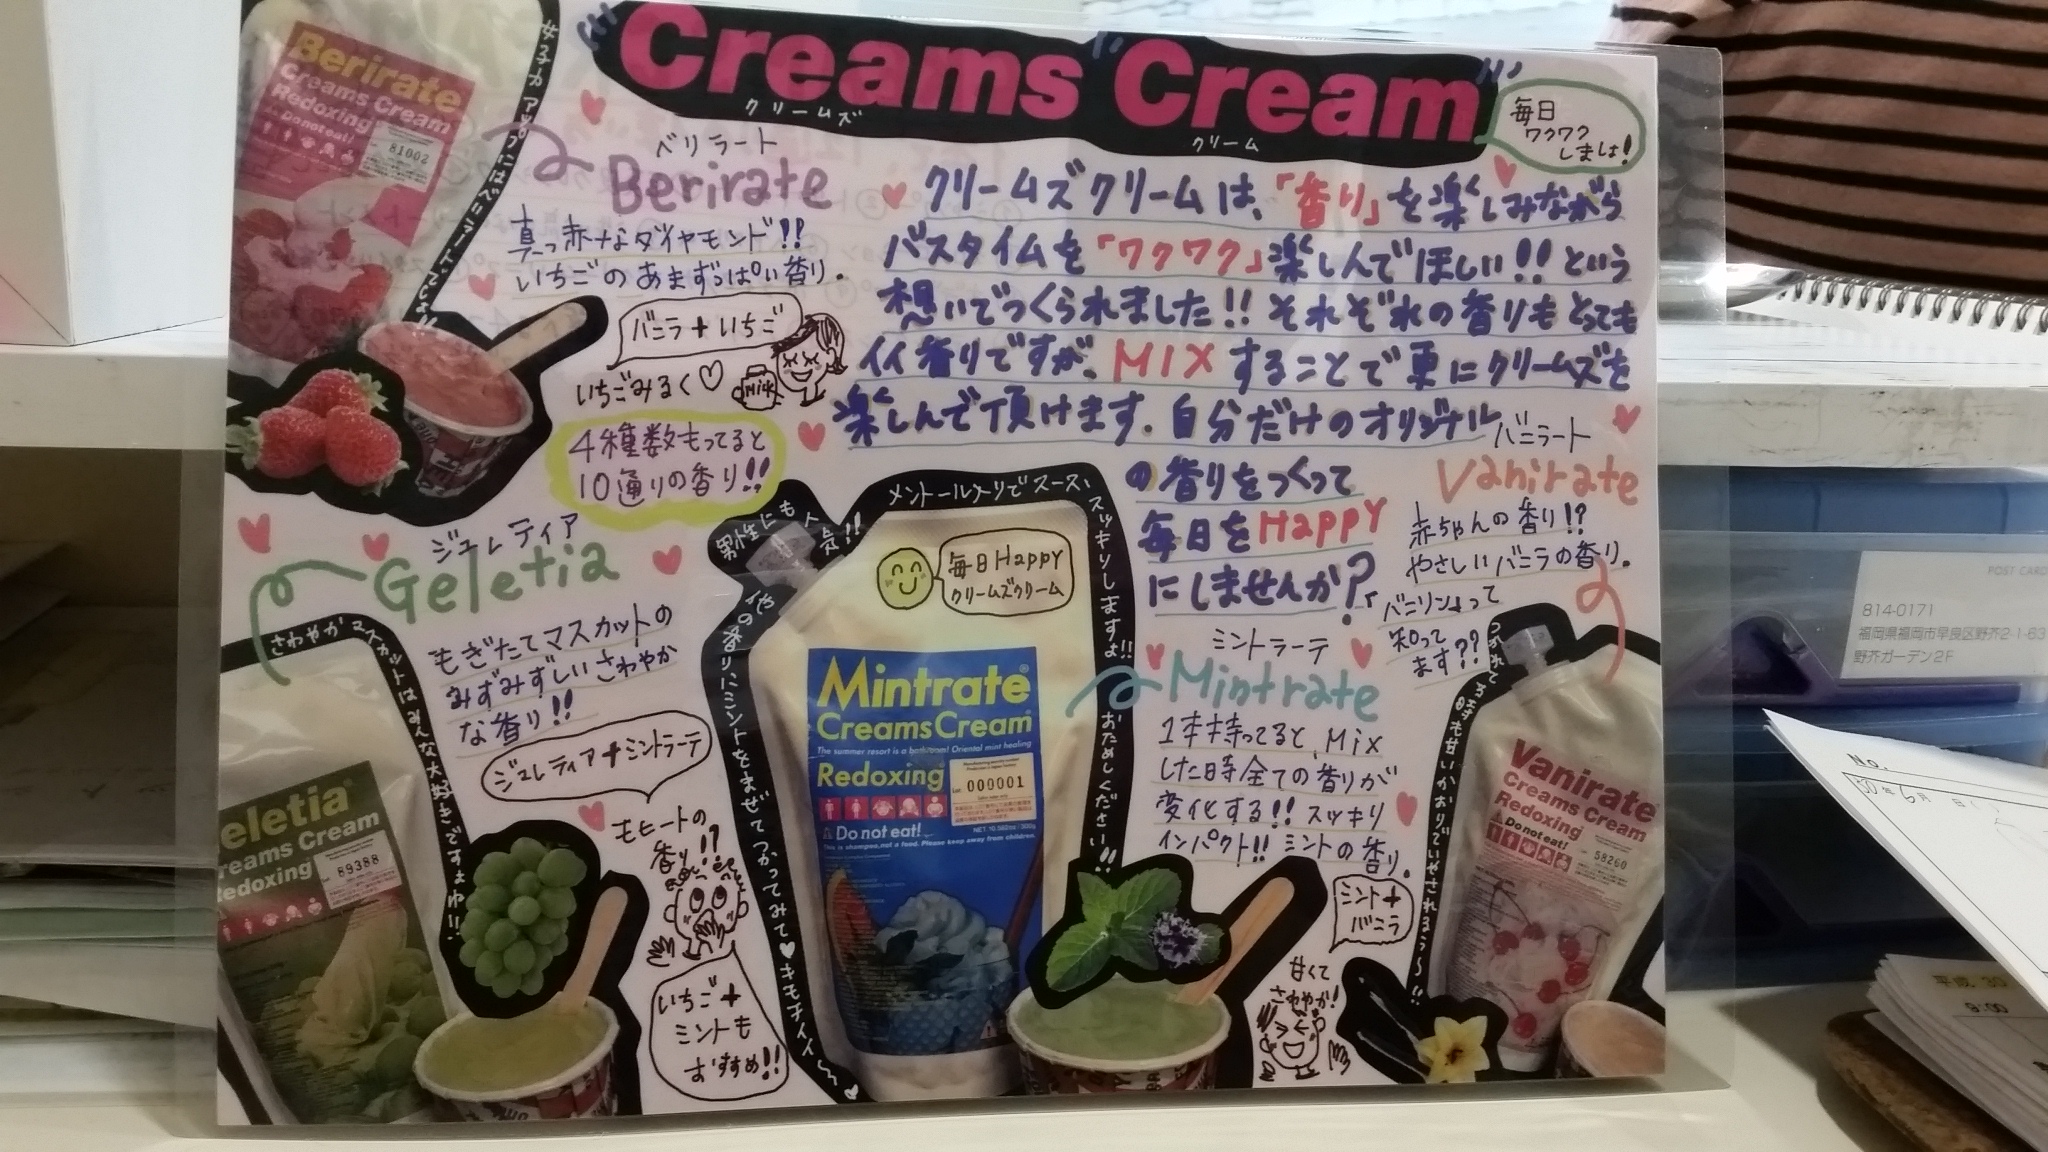 Creams Cream
クリームズ
クリーム
毎日
ワクワク
しましょ!
Berirate
Creams Cream
Redoxing
Do not eat!
81002
女子力アップにはベリラートでしょ!!
ベリラート
Berirate
真っ赤なダイヤモンド!!
いちごのあまずっぱい香り.
バニラ+いちご
いちごみるく♡
Milk
4種類もってると
10通りの香り!!
クリームズクリームは、「香り」を楽しみながら
バスタイムを「ワクワク」楽しんでほしい!!という
想いでつくられました!!それぞれの香りもとっても
イイ香りですが、MIXすることで更にクリームズを
楽しんで頂けます.自分だけのオリジナル
の香りをつくって
毎日をHappy
にしませんか?
ジュレティア
Geletia
もぎたてマスカットの
みずみずしいさわやか
な香り!!
さわやかマスカットはみんな大好きですよね!!
ジュレティア+ミントラーテ
モヒートの
香り!?
いちご+
ミントも
おすすめ!!
eletia
reams Cream
Redoxing
89388
男性にも人気!!
メントール入りでスースー、スッキリしますよ!!
おためしください!!
の香りにミントをまぜてつかってみて♥キモチイイ〜♥
毎日Happy
クリームズクリーム
Mintrate
CreamsCream
The summer resort is a bathroom! Oriental mint healing
Redoxing
000001
Do not eat!
NET.10.582oz/300g
This is shampoo,not a food. Please keep away from children.
ミントラーテ
Mintrate
1本持ってると、Mix
した時全ての香りが
変化する!!スッキリ
インパクト!!ミントの香り.
ミント+
バニラ
甘くて
さわやか!
バニラート
Vanirate
赤ちゃんの香り!?
やさしいバニラの香り.
「バニリン」って
知って
ます??
Vanirate
Creams Cream
Redoxing
Do not eat!
58260
POST CARD
814-0171
福岡県福岡市早良区野芥2-1-63
野芥ガーデン2F
No.
30年6月 日( )
平成 30
9:00